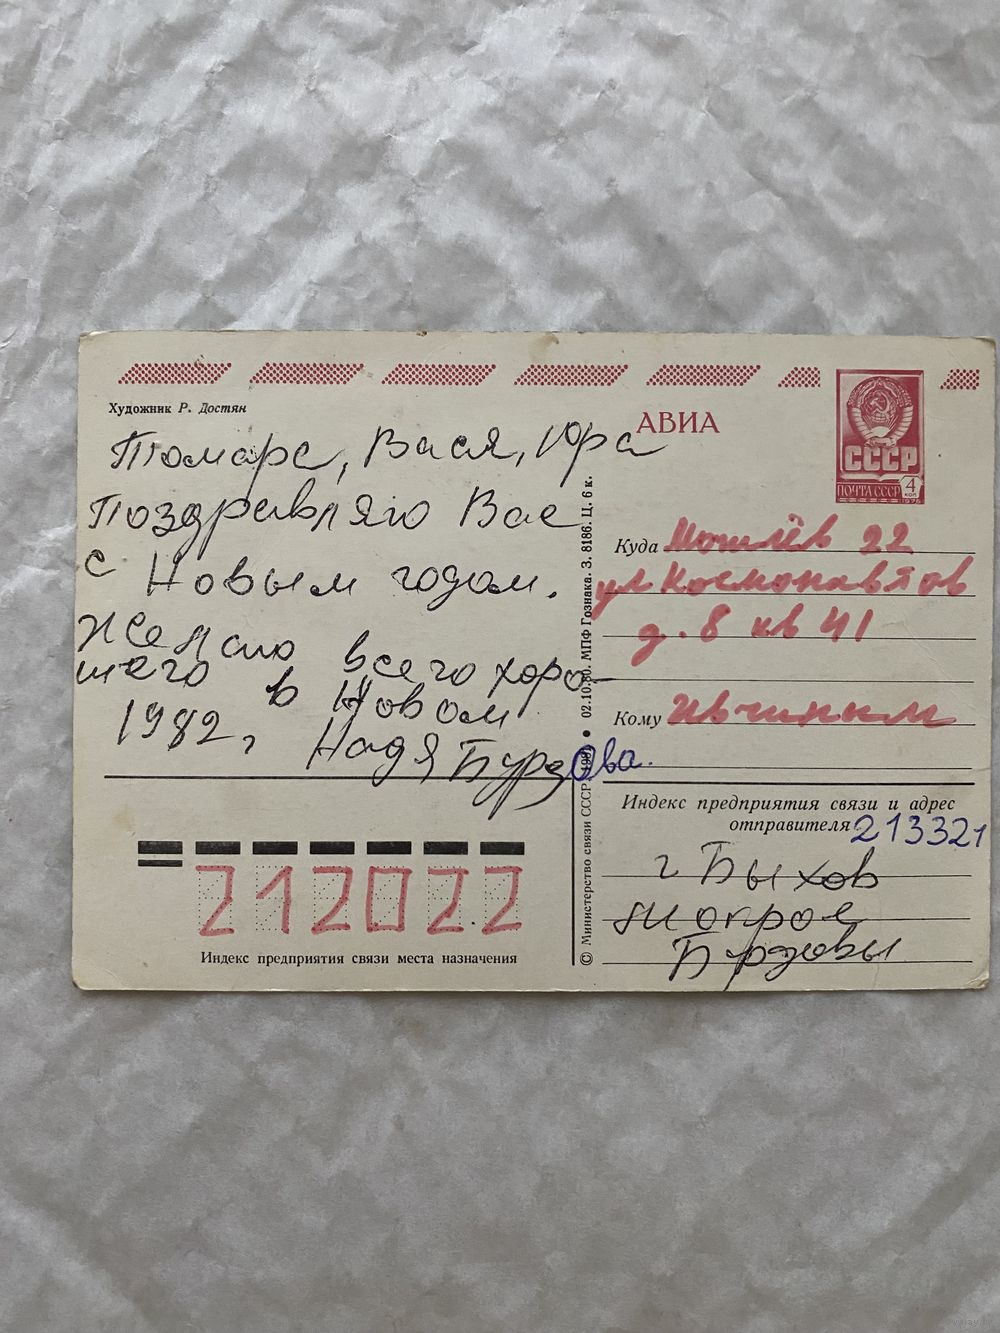 Художник Р. Достян
АВИА
СССР
ПОЧТА СССР 4 коп
Томара, Вася, Юра
Поздравляю Вас
с Новым годом.
Желаю всего хоро-
шего в Новом
1982г Надя Бурдова.
Куда Могилёв 22
ул Космонавтов
д. 8 кв 41
Кому Ивчиным
Индекс предприятия связи и адрес
отправителя 213321
г Быхов
Бурдовы
212022
Индекс предприятия связи места назначения
© Министерство связи СССР 02.10.80. МПФ Гознака. З. 8186. Ц. 6 к.